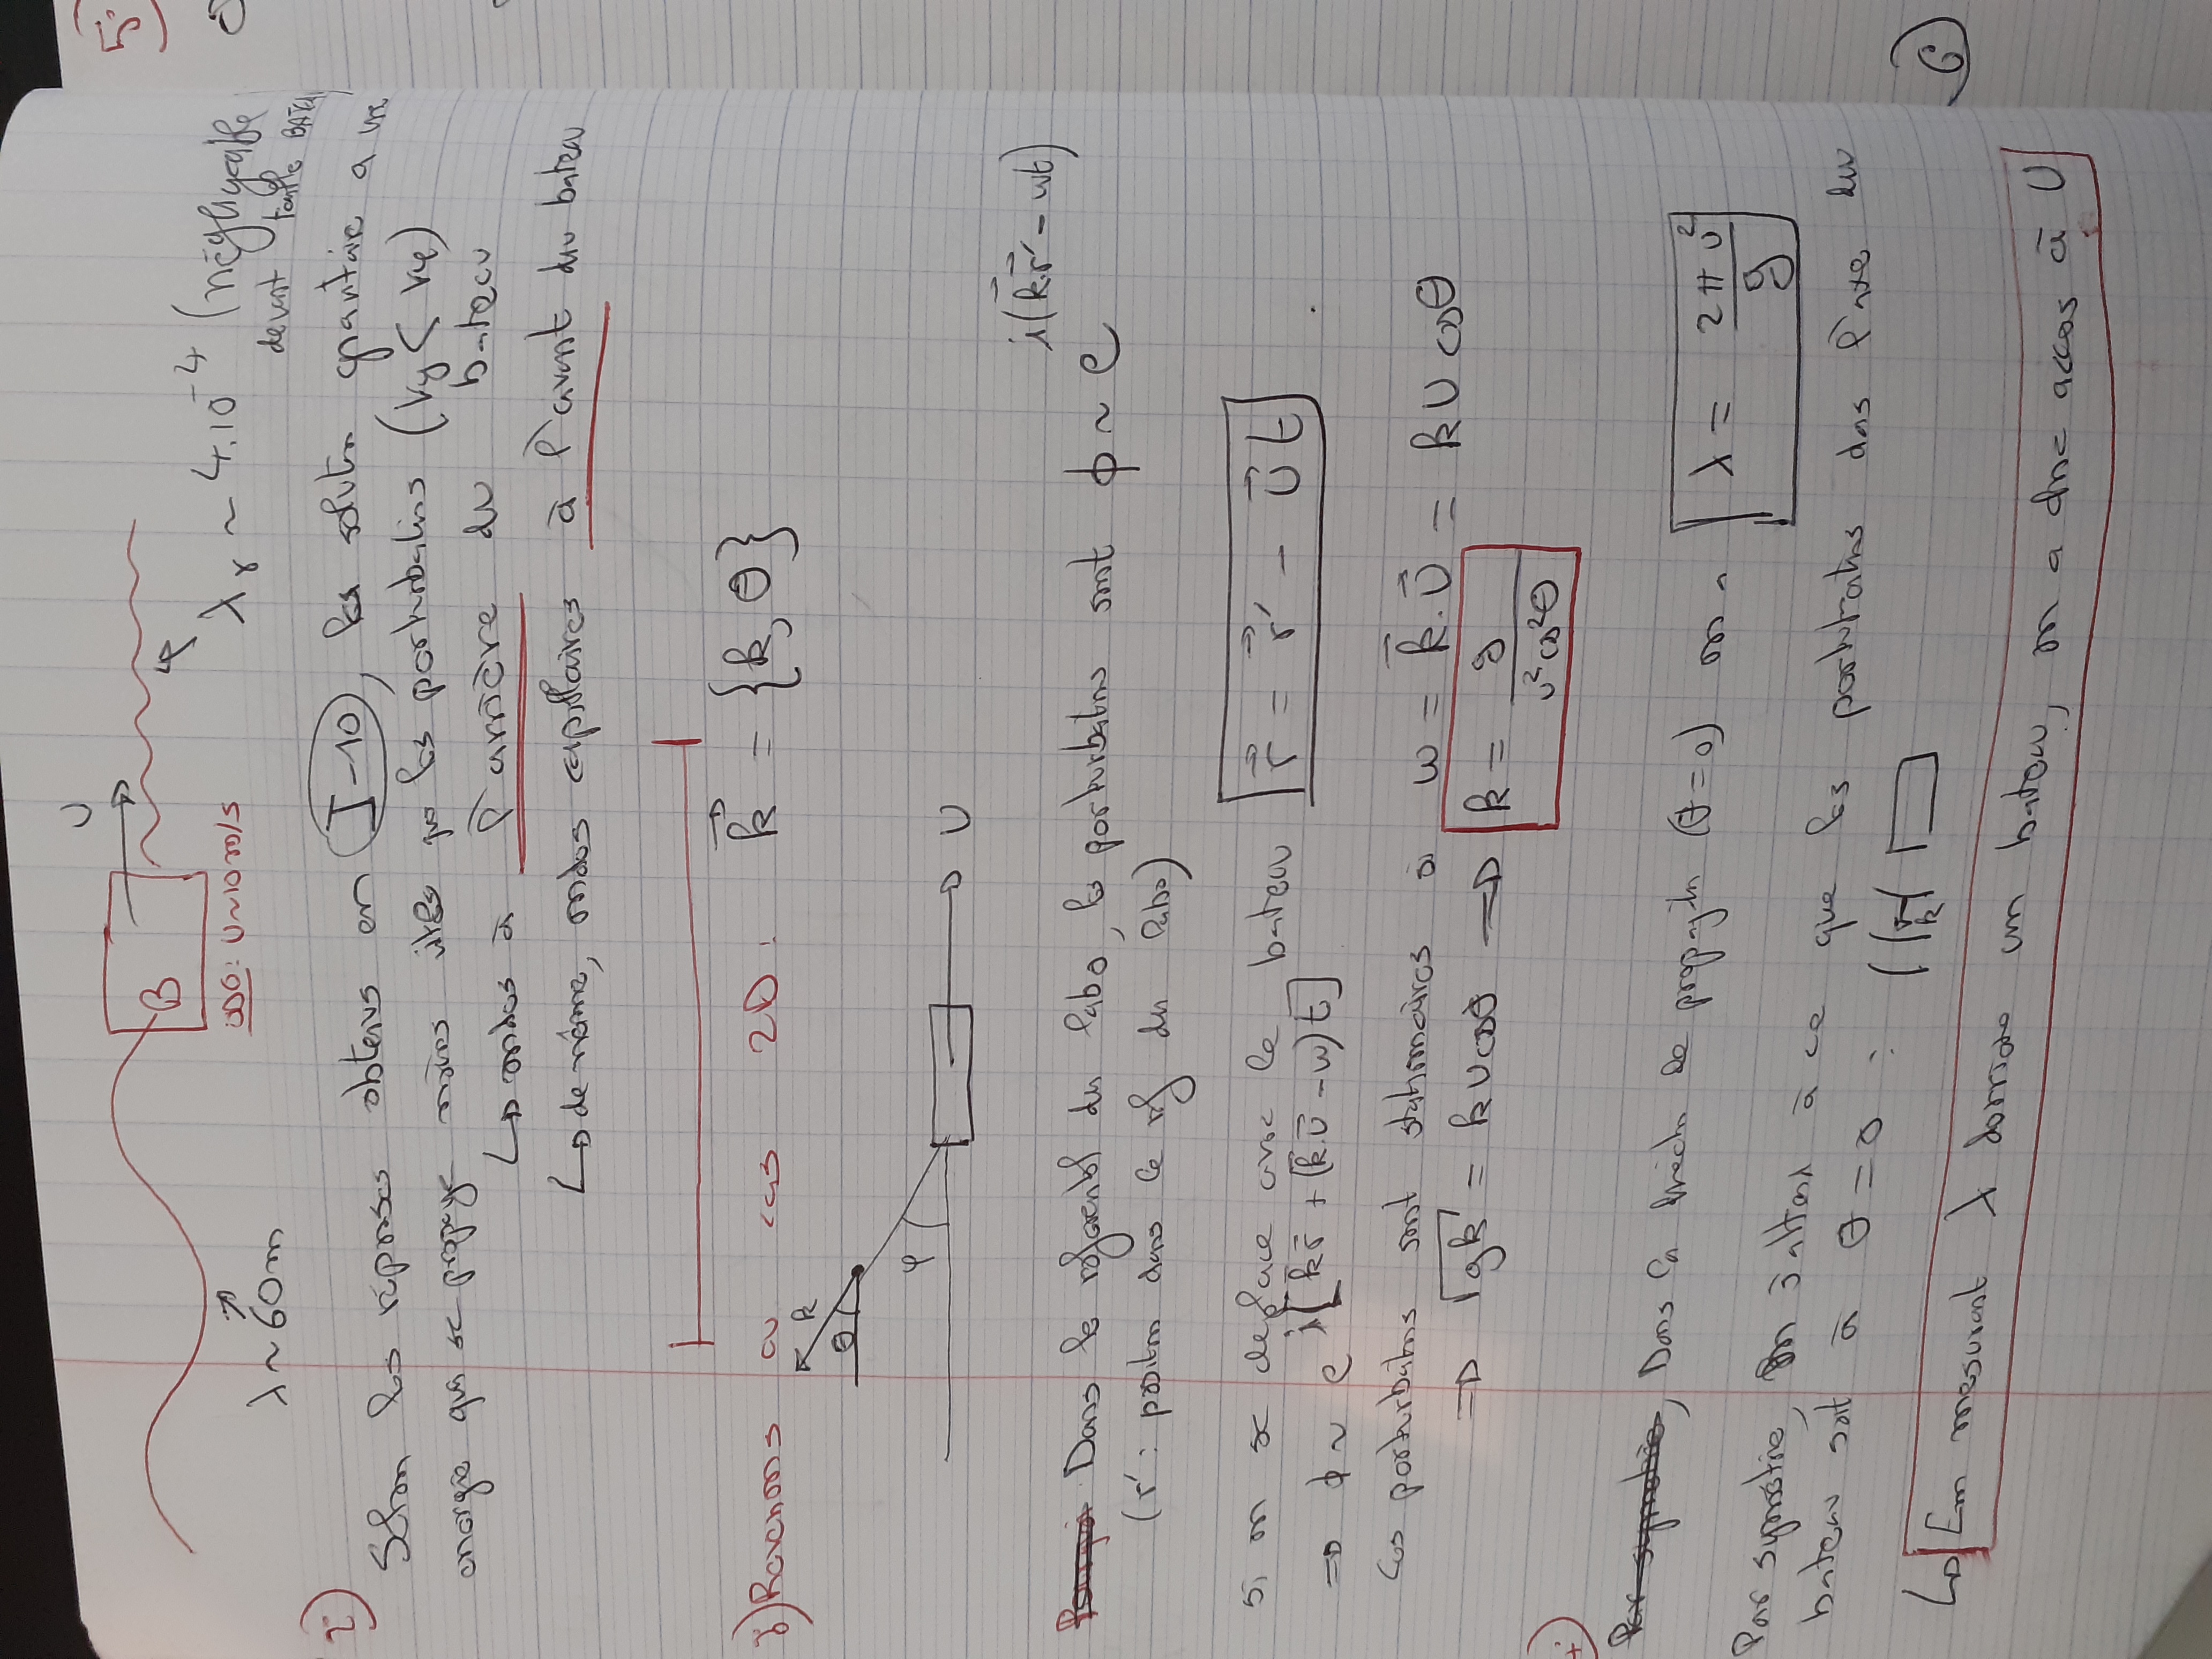 U
B
ODG: U~10 m/s
λ ~ 60m
λγ ~ 4.10⁻⁴ (négligeable
devant taille BATEAU
2)
Selon les réponses obtenus en I-10, les solution gravitaire a une
energie qui se propage moins vites que les perturbations (Vg < Vφ)
↳ ondes à l'arrière du bateau
↳ de même, ondes capillaires à l'avant du bateau
3) Revenons au cas 2D : k⃗ = {k, θ}
k
θ
φ
U
Dans le referentiel du labo, les perturbations sont ϕ ~ e^{i(k⃗.r⃗' - ωt)}
(r' : position dans le ref du labo)
Si on se deplace avec le bateau r⃗ = r⃗' - U⃗t .
⇒ ϕ ~ e^{i[k⃗r⃗ + (k⃗.U⃗ - ω)t]}
Les perturbations sont stationnaires si ω = k⃗.U⃗ = kU cosθ
⇒ √gk = kUcosθ ⇒ k = g / U²cos²θ
4)
Par symetrie, Dans la direction de propagation (θ=0) on a λ = 2πU² / g
Par symétrie, on s'attend à ce que les perturbations dans l'axe du
bateau soit à θ = 0 :
k
↳ En mesurant λ derrière un bateau, on a donc accès à U
5)
6)